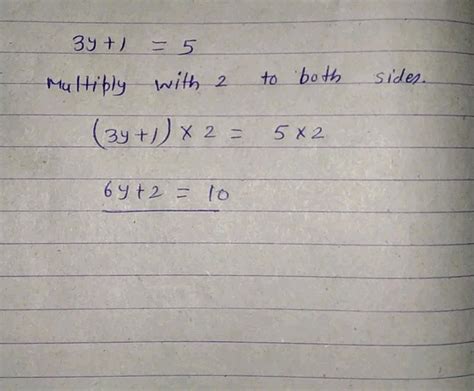 3y+1 = 5
Multiply with 2 to both sides.
(3y+1) × 2 = 5×2
6y+2 = 10